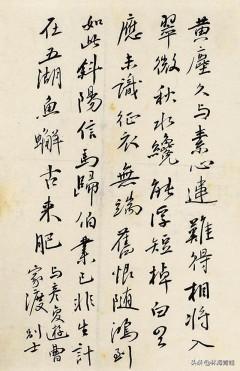 黄塵久与素心違難得相將入
翠微秋水纔能浮短棹白雲
應未識征衣無端舊恨隨鴻到
如此斜陽信馬歸伯業已非生計
在五湖魚蟹古來肥
与彦復遊曹
家渡 别士